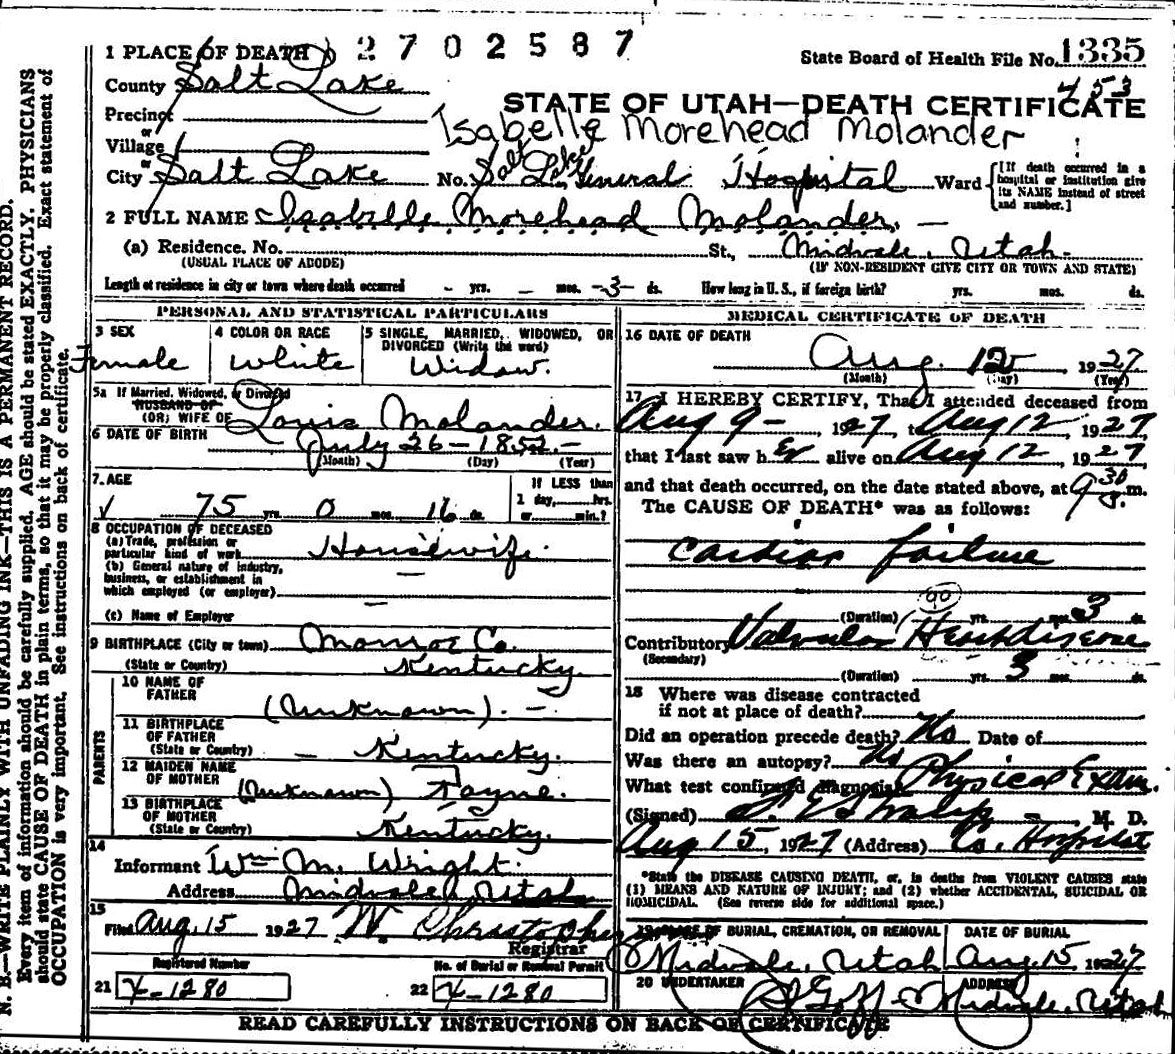 1 PLACE OF DEATH 2702587
State Board of Health File No. 1335
453
County Salt Lake
STATE OF UTAH—DEATH CERTIFICATE
Precinct
Isabelle Morehead Molander
or
Village
or
City Salt Lake No. Salt Lake General Hospital Ward [If death occurred in a hospital or institution give its NAME instead of street and number.]
2 FULL NAME Isabelle Morehead Molander. —
(a) Residence. No. St., Midvale, Utah.
(USUAL PLACE OF ABODE) (IF NON-RESIDENT GIVE CITY OR TOWN AND STATE)
Length of residence in city or town where death occurred - yrs. - mos. -3- ds. How long in U.S., if foreign birth? yrs. mos. ds.
PERSONAL AND STATISTICAL PARTICULARS
3 SEX
Female
4 COLOR OR RACE
White
5 SINGLE, MARRIED, WIDOWED, OR DIVORCED (Write the word)
Widow.
5a If Married, Widowed, or Divorced
HUSBAND OF
(OR) WIFE OF Louis Molander.
6 DATE OF BIRTH July 26-1852-
(Month) (Day) (Year)
7. AGE
75 yrs. 0 mos. 16 ds.
If LESS than
1 day, hrs.
or min.?
8 OCCUPATION OF DECEASED
(a) Trade, profession or
particular kind of work Housewife.
(b) General nature of industry,
business, or establishment in
which employed (or employer) —
(c) Name of Employer —
9 BIRTHPLACE (City or town) Monroe Co.
(State or Country) Kentucky.
PARENTS
10 NAME OF
FATHER (Unknown). -
11 BIRTHPLACE
OF FATHER
(State or Country) - Kentucky.
12 MAIDEN NAME
OF MOTHER (Unknown) Payne.
13 BIRTHPLACE
OF MOTHER
(State or Country) Kentucky.
14
Informant Wm M. Wright.
Address Midvale, Utah
15
Filed Aug. 15 1927 W. Christopher
Registrar
Registered Number No. of Burial or Removal Permit
21 X-1280 22 X-1280
MEDICAL CERTIFICATE OF DEATH
16 DATE OF DEATH
Aug. 12, 1927
(Month) (Day) (Year)
17 I HEREBY CERTIFY, That I attended deceased from
Aug 9-, 1927, to Aug 12, 1927,
that I last saw her alive on Aug 12, 1927
and that death occurred, on the date stated above, at 9 30 m.
The CAUSE OF DEATH* was as follows:
Cardiac failure
90
(Duration) yrs. mos. 3 ds.
Contributory Valvular Heart disease
(Secondary)
(Duration) yrs. 3 mos. ds.
18 Where was disease contracted
if not at place of death?
Did an operation precede death? No Date of
Was there an autopsy? No
What test confirmed diagnosis? Physical Exam.
(Signed) M. D.
Aug 15, 1927 (Address) Co. Hospital
*State the DISEASE CAUSING DEATH, or, in deaths from VIOLENT CAUSES state
(1) MEANS AND NATURE OF INJURY; and (2) whether ACCIDENTAL, SUICIDAL OR
HOMICIDAL. (See reverse side for additional space.)
19 PLACE OF BURIAL, CREMATION, OR REMOVAL
Midvale, Utah
DATE OF BURIAL
Aug. 15, 1927
20 UNDERTAKER
Goff
ADDRESS
Midvale, Utah
READ CAREFULLY INSTRUCTIONS ON BACK OF CERTIFICATE
N. B.—WRITE PLAINLY WITH UNFADING INK—THIS IS A PERMANENT RECORD.
Every item of information should be carefully supplied. AGE should be stated EXACTLY. PHYSICIANS
should state CAUSE OF DEATH in plain terms, so that it may be properly classified. Exact statement of
OCCUPATION is very important. See instructions on back of certificate.